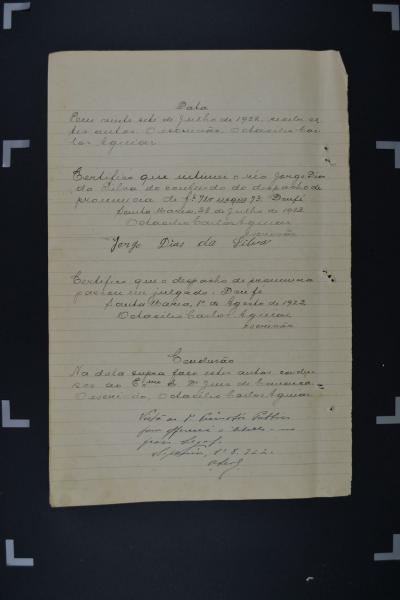 Data
Em vinte sete de Julho de 1922, recebi es-
tes autos. O escrivão, Octacilio Car-
los Aguiar
Certifico que intimei o réo Jorge Dias
da Silva do conteudo do despacho de
pronuncia de fs. 73. Doufé
Santa Maria, 28 de Julho de 1922
Octacilio Carlos Aguiar
Escrivão
Jorge Dias da Silva
Certifico que o despacho de pronuncia
passou em julgado. Doufé
Santa Maria, 1º de Agosto de 1922
Octacilio Carlos Aguiar
Escrivão
Conclusão
Na data supra faço estes autos conclu-
sos ao Exmo Sr. Dr. Juiz de Comarca
O escrivão, Octacilio Carlos Aguiar
Vista ao Dr. Promotor Publico
para offerecer o libello no
praso legal.
1º 8. 922.